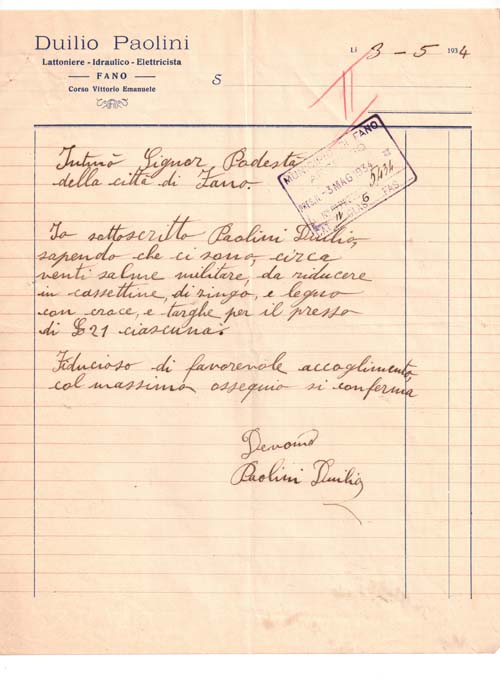 Duilio Paolini
Lattoniere - Idraulico - Elettricista
FANO
Corso Vittorio Emanuele
S
Li 3 - 5 1934
MUNICIPIO DI FANO
3 MAG 1934
5434
6
FAS.
Intmo Signor Podestà
della città di Fano.
Io sottoscritto Paolini Duilio,
sapendo che ci sono, circa
venti salme militare, da riducere
in cassettine, di zingo, e legno
con croce, e targhe per il presso
di £21 ciascuna.
Fiducioso di favorevole accoglimento,
col massimo ossequio si conferma
Devomo
Paolini Duilio